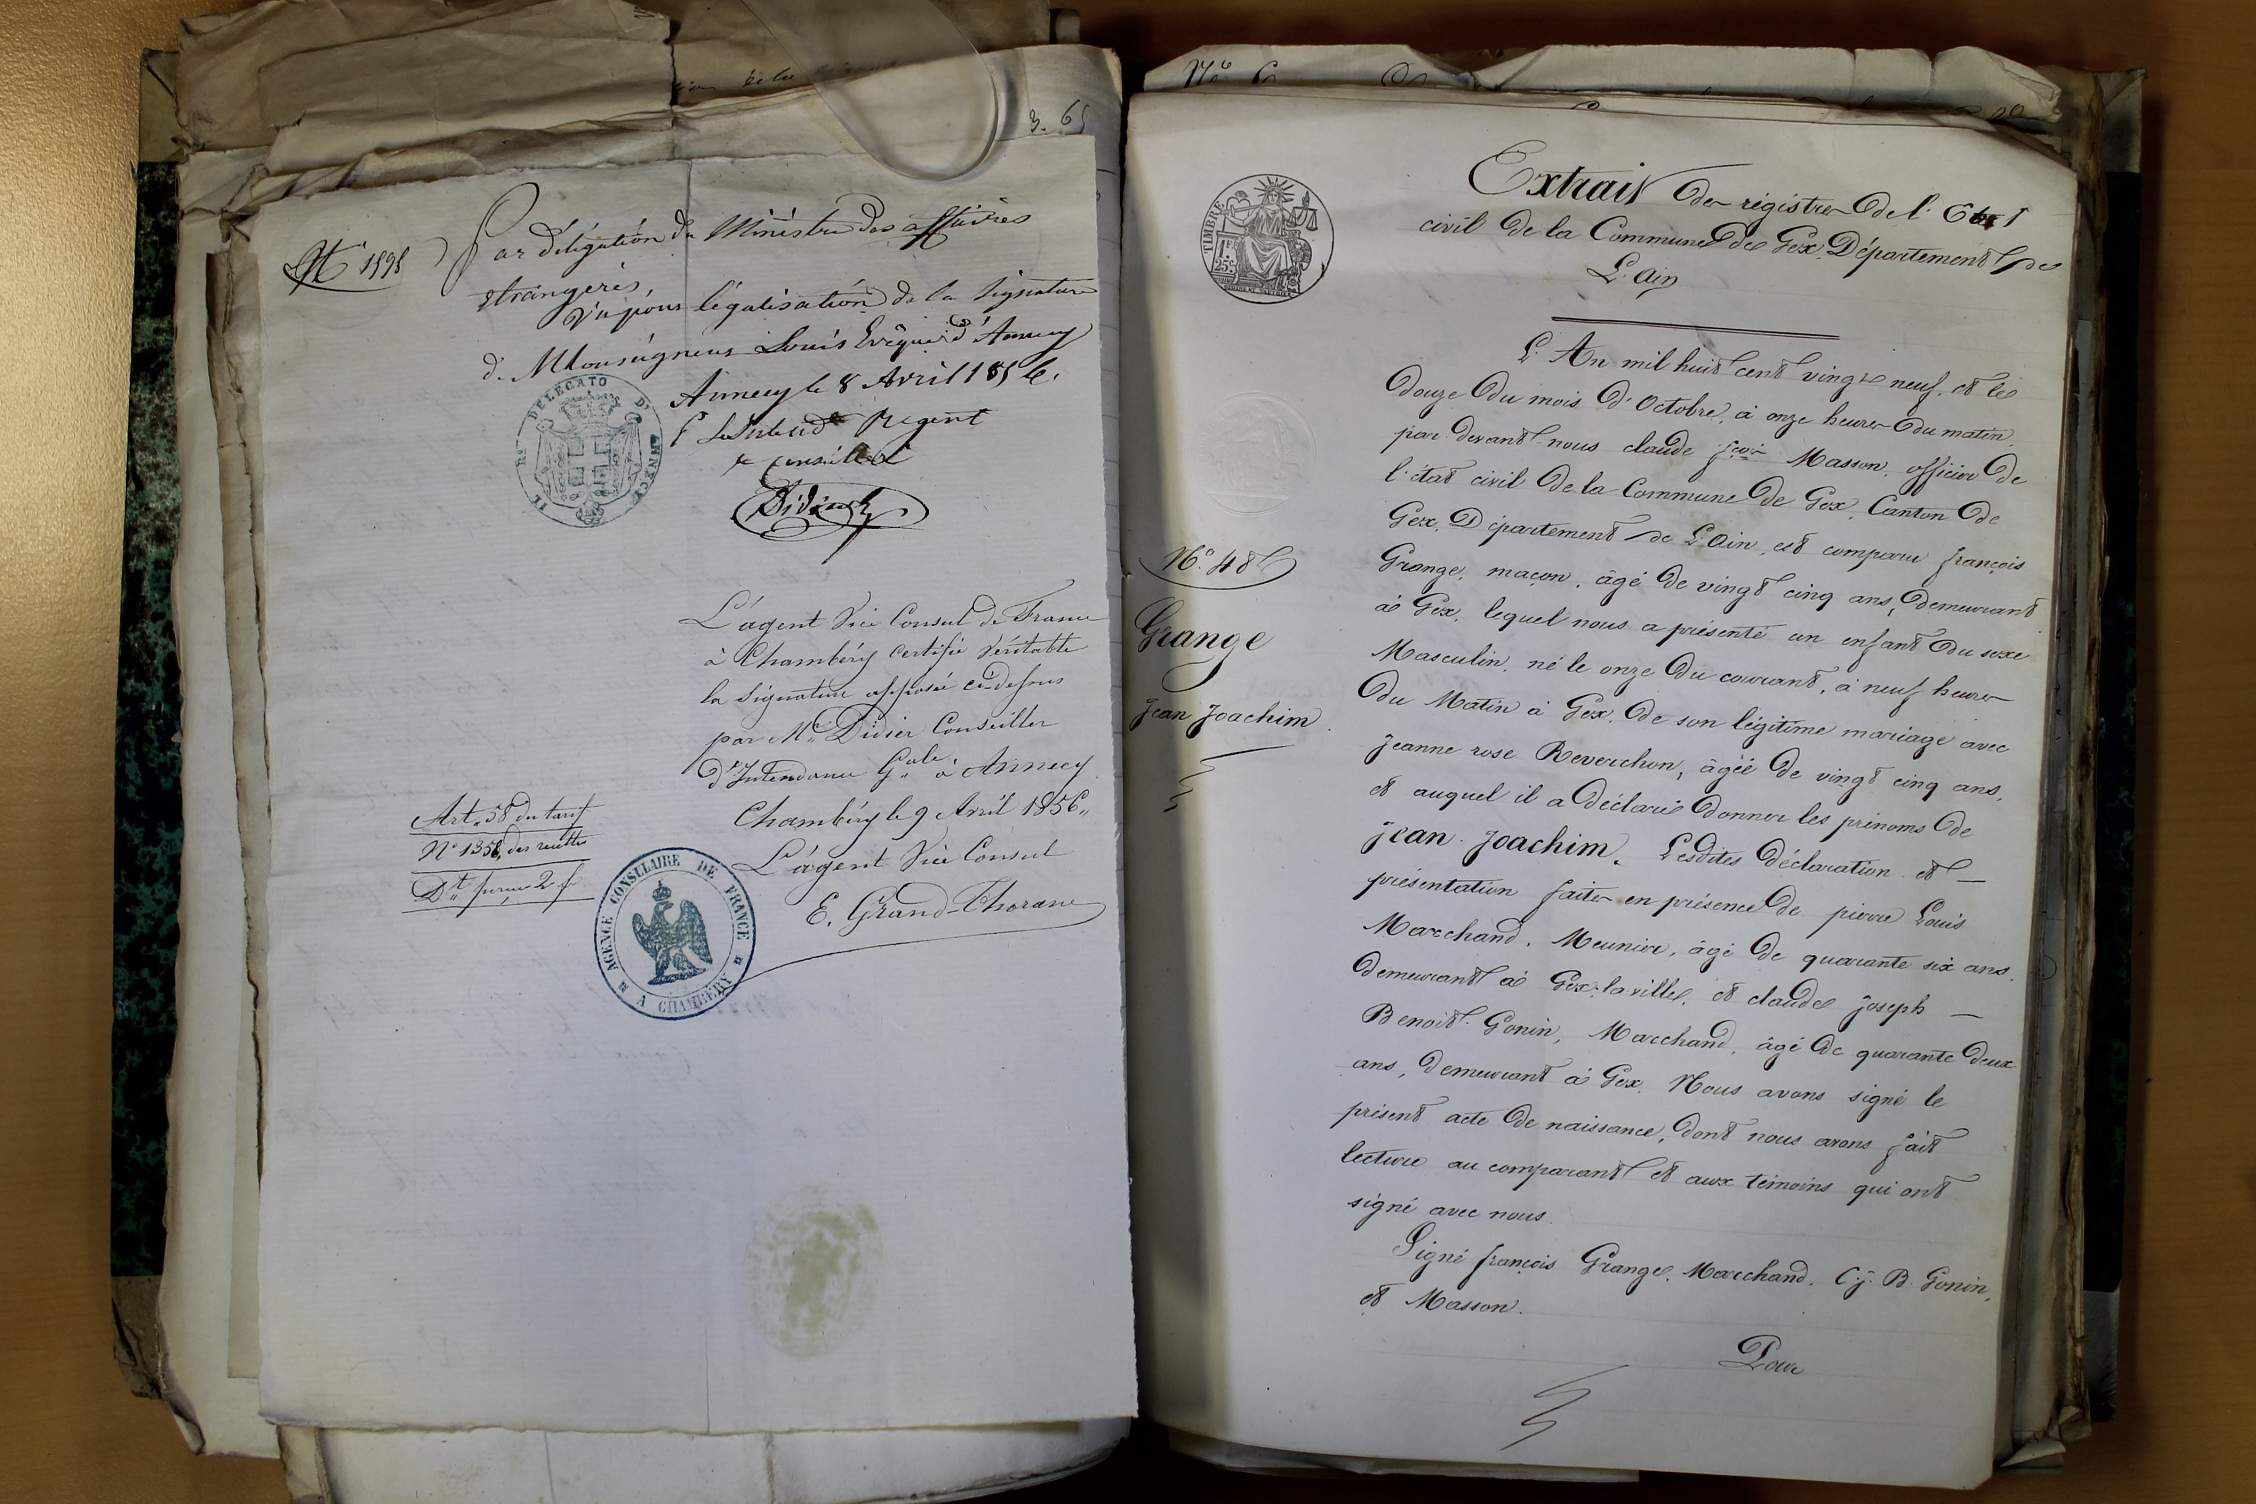 3. 65
N° 1898
Par délégation du Ministre des affaires
étrangères,
Vu pour légalisation de la signature
de Monseigneur Louis Evêque d'Annecy
Annecy le 8 Avril 1856.
Régent
le conseiller
Didier
Rle DELEGATO D'ANNECY
L'agent Vice Consul de France
à Chambéry certifie véritable
la signature apposée ci-dessus
par Mr. Didier Conseiller
d'Intendance Gale à Annecy
Chambéry le 9 Avril 1856.
L'agent Vice Consul
E. Grand-Thorane
Art. 58 du tarif
N° 1358 des recettes
Dt. perçu 2 f
AGENCE CONSULAIRE DE FRANCE
A CHAMBÉRY
TIMBRE
1 F.
25 c.
Extrait des registres de l'État
civil de la Commune de Gex, Département de
L'ain
L'An mil huit cent vingt neuf, et le
douze du mois d'Octobre, à onze heures du matin,
par devant nous claude fçois Masson, officier de
l'état civil de la Commune de Gex, Canton de
Gex, Département de L'ain, est comparu françois
Grange, maçon, âgé de vingt cinq ans, demeurant
à Gex, lequel nous a présenté un enfant du sexe
Masculin, né le onze du courant, à neuf heures
du Matin à Gex, de son légitime mariage avec
jeanne rose Reverchon, âgée de vingt cinq ans,
et auquel il a déclaré donner les prénoms de
jean joachim. Lesdites déclaration et
présentation faites en présence de pierre Louis
Marchand, Meunier, âgé de quarante six ans,
demeurant à Gex-la-ville, et claude joseph
Benoit Gonin, Marchand, âgé de quarante deux
ans, demeurant à Gex. Nous avons signé le
présent acte de naissance, dont nous avons fait
lecture au comparant et aux témoins qui ont
signé avec nous.
Signé françois Grange, Marchand, C. j. B. Gonin,
et Masson.
Pour
N° 48
Grange
jean joachim